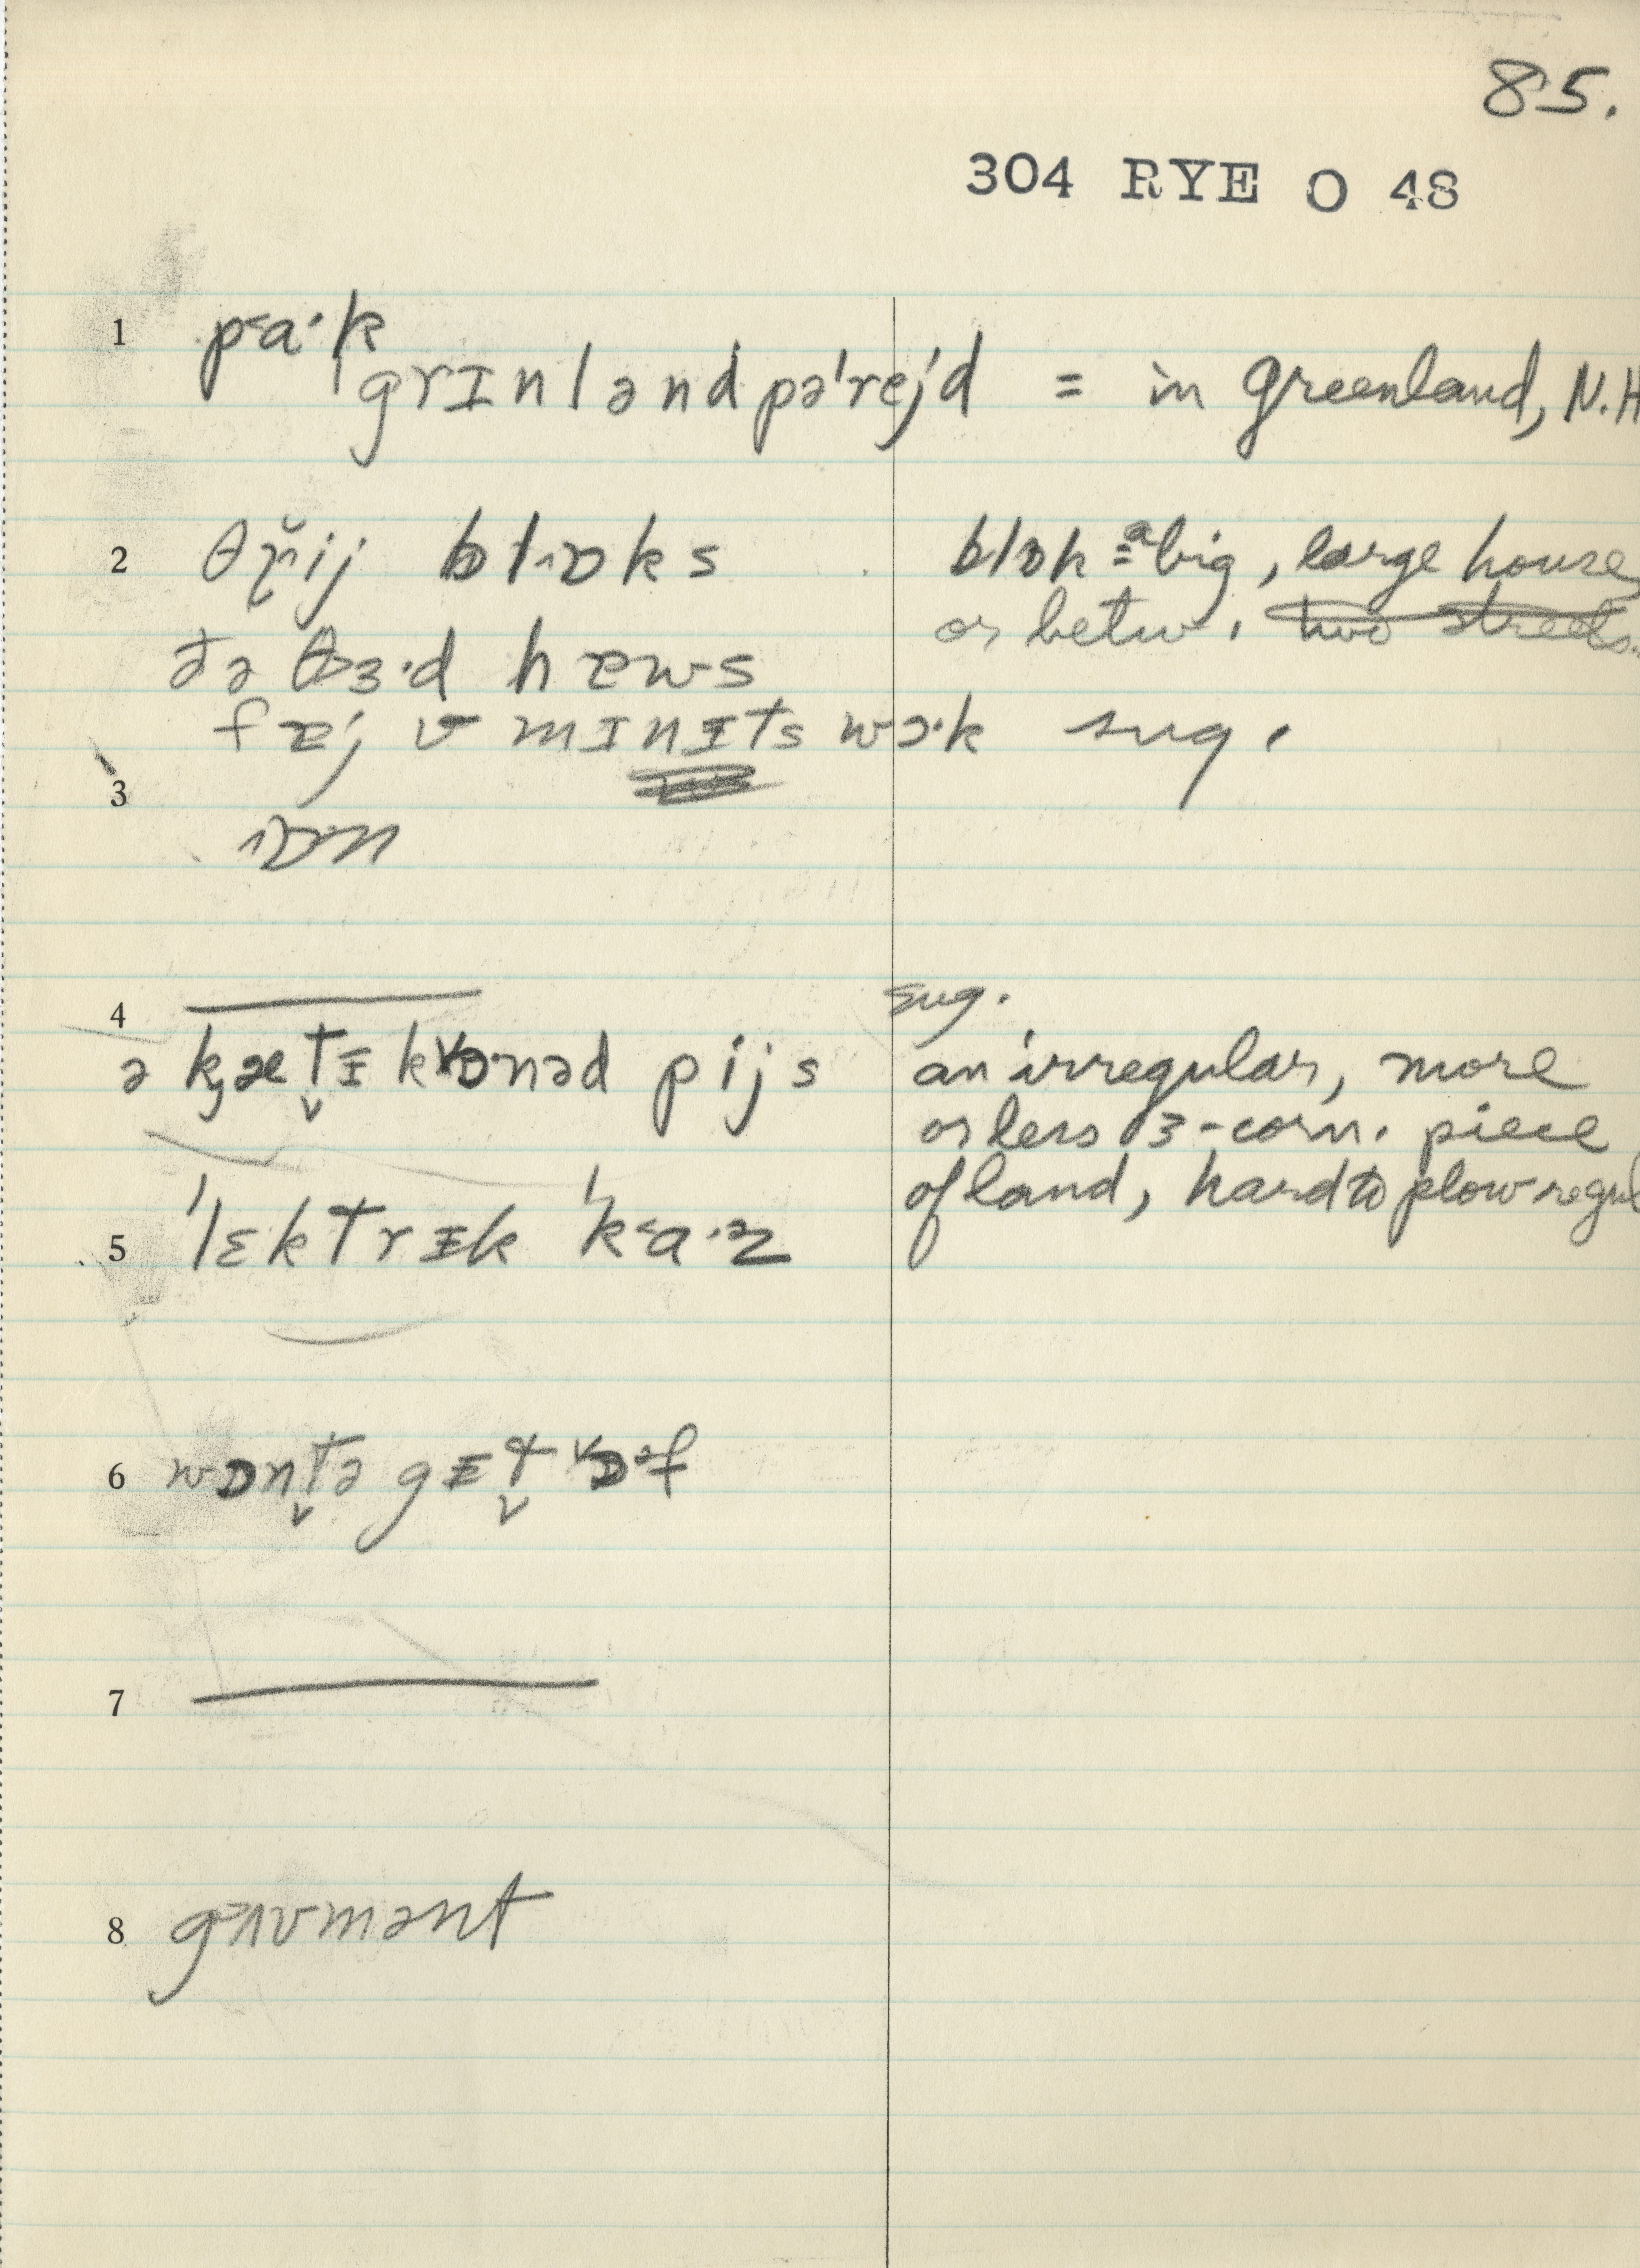 85.
304 RYE O 48
1 p˂a·k
ˈgrɪnlənd pəˈrejd = in Greenland, N.H
2 θr̆ij blɒks blɒk = a big, large house,
or betw. two streets.
ðə θɜ·d hæws
fæjv mɪnɪts wɔ·k sug.
3
ɒn
4
sug.
ə kætɪkɒnəd pijs an irregular, more
or less 3-corn. piece
of land, hard to plow regul
5 ˈlɛktrɪk ˈk˂a·z
6 wɒntə gɛt ɒəf
7
8 gʌvmənt